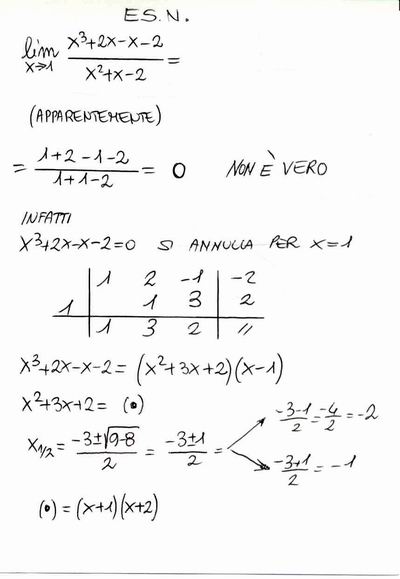 ES.N.
lim x→1 (x³+2x-x-2)/(x²+x-2) =
(APPARENTEMENTE)
= (1+2-1-2)/(1+1-2) = 0 NON È VERO
INFATTI
x³+2x-x-2=0 SI ANNULLA PER x=1
1 2 -1 -2
1 1 3 2
1 3 2 //
x³+2x-x-2= (x²+3x+2)(x-1)
x²+3x+2= (•)
x1/2 = (-3±√9-8)/2 = (-3±1)/2 =
(-3-1)/2 = -4/2 = -2
(-3+1)/2 = -1
(•) = (x+1)(x+2)